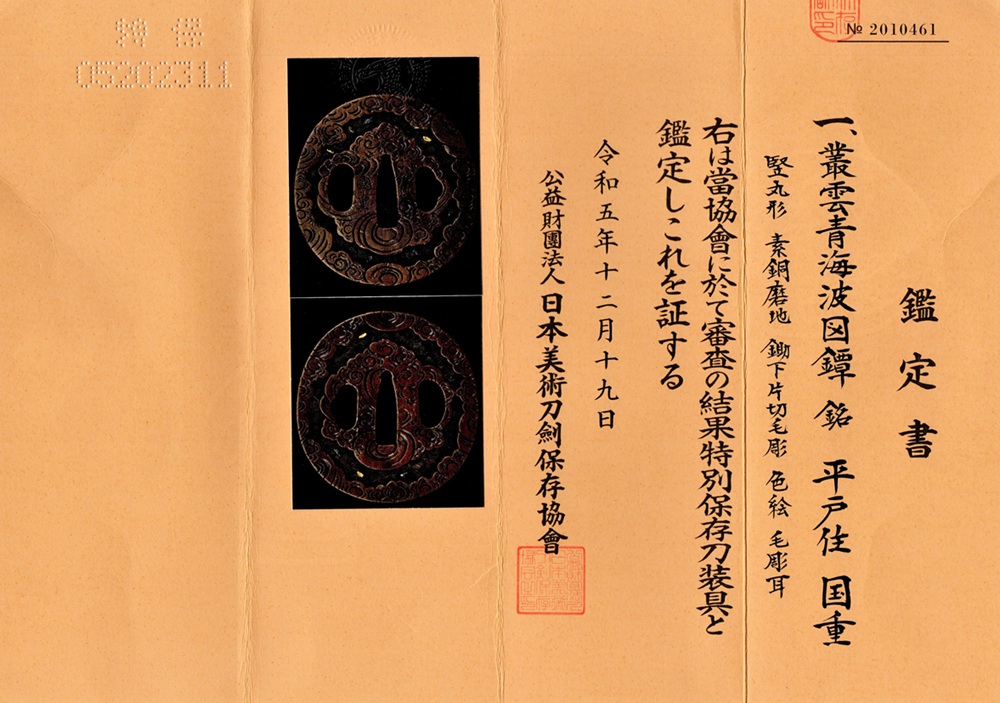 № 2010461
鑑定書
一、叢雲青海波図鐔 銘 平戸住 国重
竪丸形 素銅磨地 鋤下片切毛彫 色絵 毛彫耳
右は當協會に於て審査の結果特別保存刀装具と
鑑定しこれを証する
令和五年十二月十九日
公益財團法人日本美術刀劍保存協會
特保
05202311